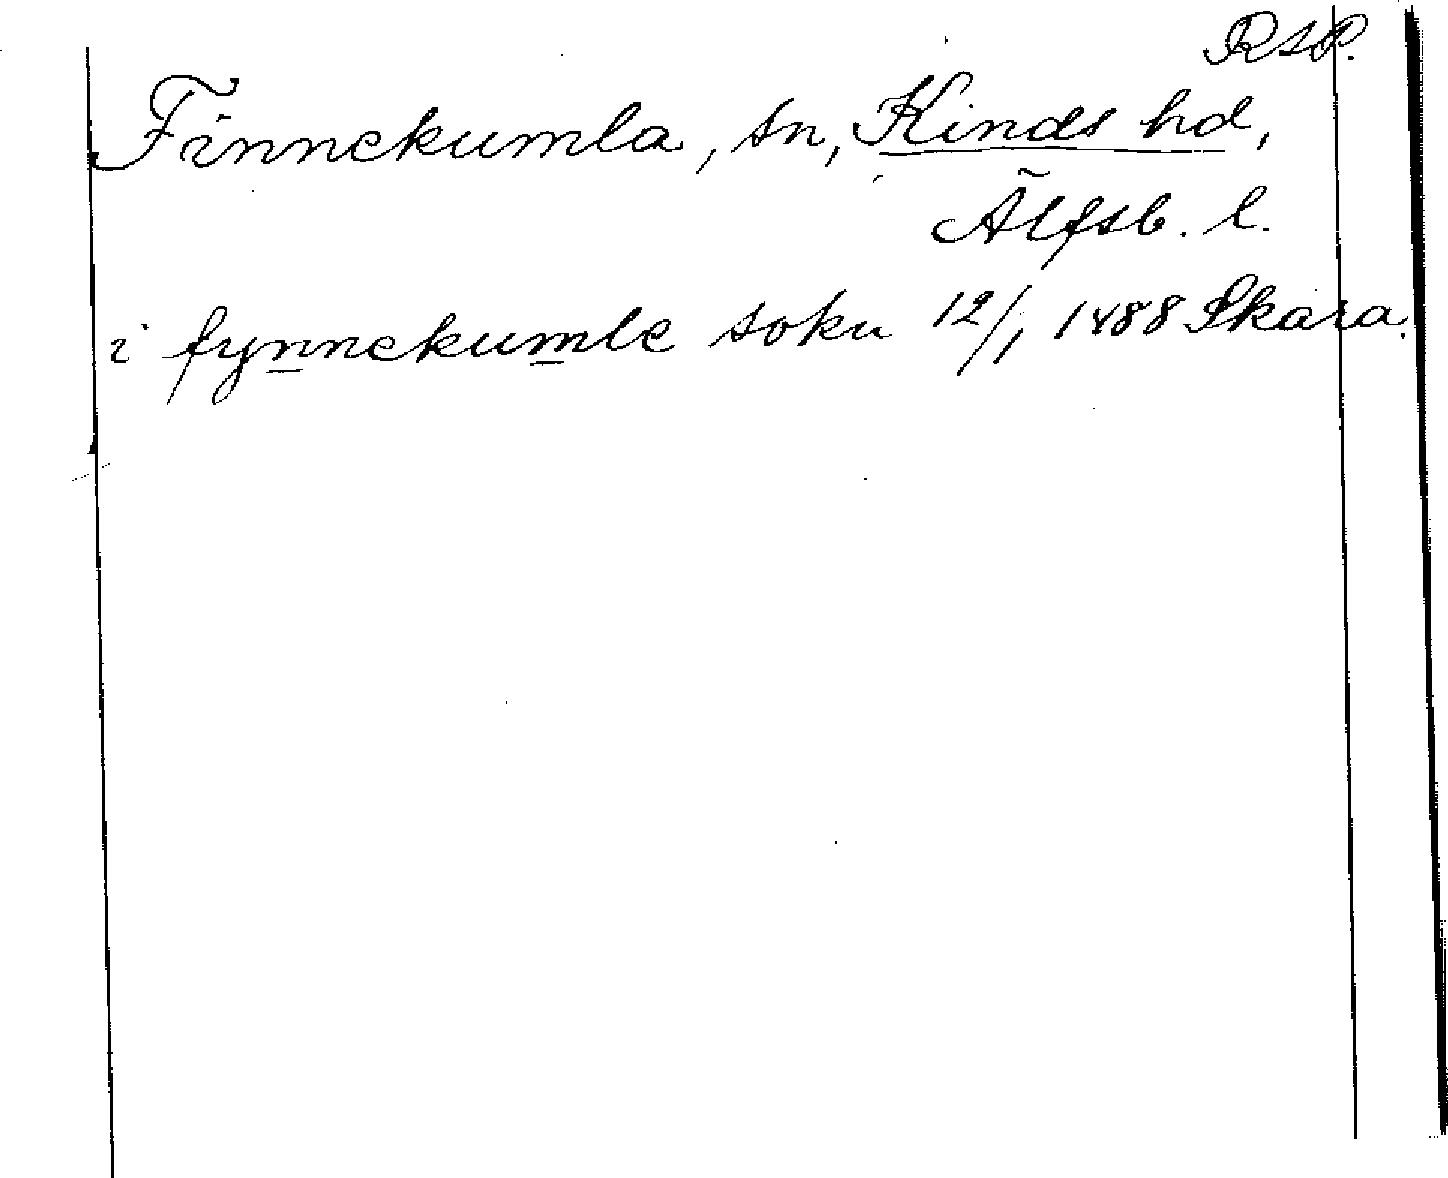 RAP.
Finnekumla, sn, Kinds hd,
Älfsb. l.
i fynnekumle sokn 12/1 1488 Skara.